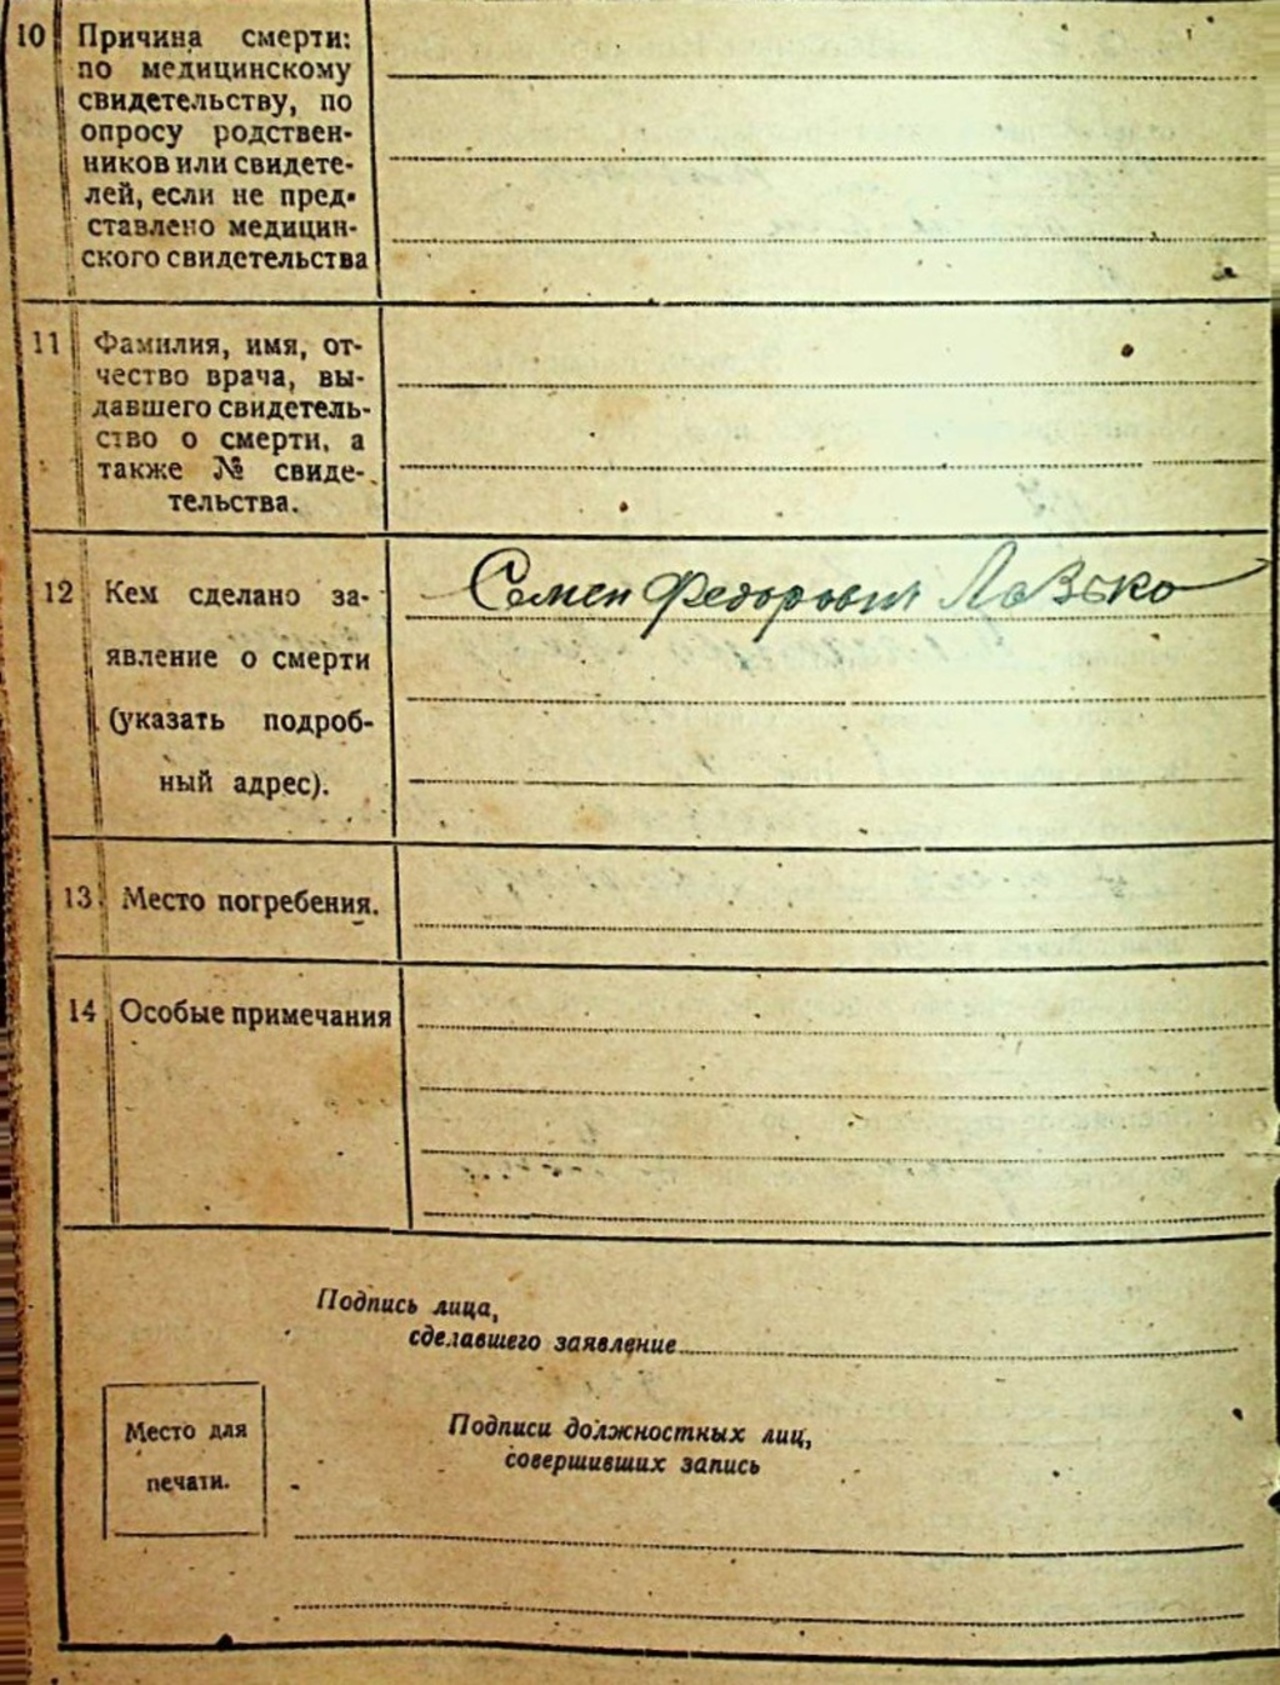 10 Причина смерти:
по медицинскому
свидетельству, по
опросу родствен-
ников или свидете-
лей, если не пред-
ставлено медицин-
ского свидетельства
11 Фамилия, имя, от-
чество врача, вы-
давшего свидетель-
ство о смерти, а
также № свиде-
тельства.
12 Кем сделано за-
явление о смерти
(указать подроб-
ный адрес).
Семен Федорович
13. Место погребения.
14 Особые примечания
Подпись лица,
сделавшего заявление
Место для
печати.
Подписи должностных лиц,
совершивших запись